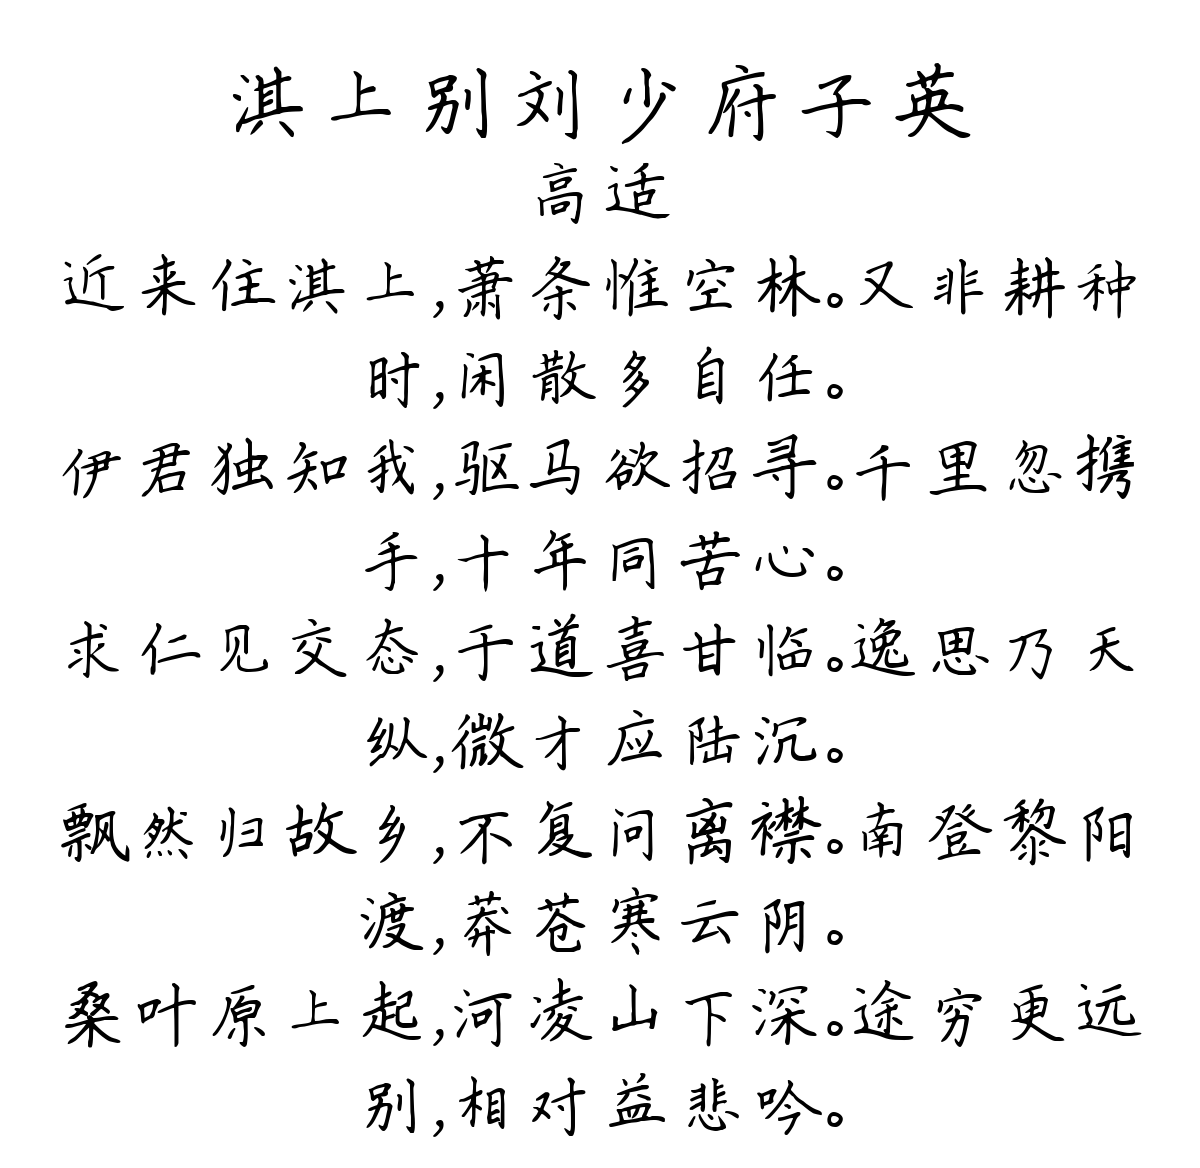 淇上别刘少府子英
高适
近来住淇上,萧条惟空林。又非耕种
时,闲散多自任。
伊君独知我,驱马欲招寻。千里忽携
手,十年同苦心。
求仁见交态,于道喜甘临。逸思乃天
纵,微才应陆沉。
飘然归故乡,不复问离襟。南登黎阳
渡,莽苍寒云阴。
桑叶原上起,河凌山下深。途穷更远
别,相对益悲吟。